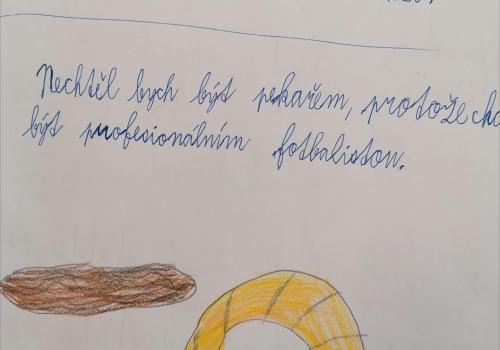 Nechtěl bych být pekařem, protože chc
být profesionálním fotbalistou.